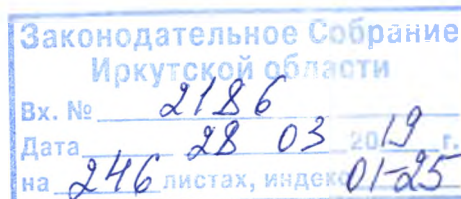 Законодательное Собрание
Иркутской области
Вх. № 2186
Дата 28 03 2019 г.
на 246 листах, индекс 01-25